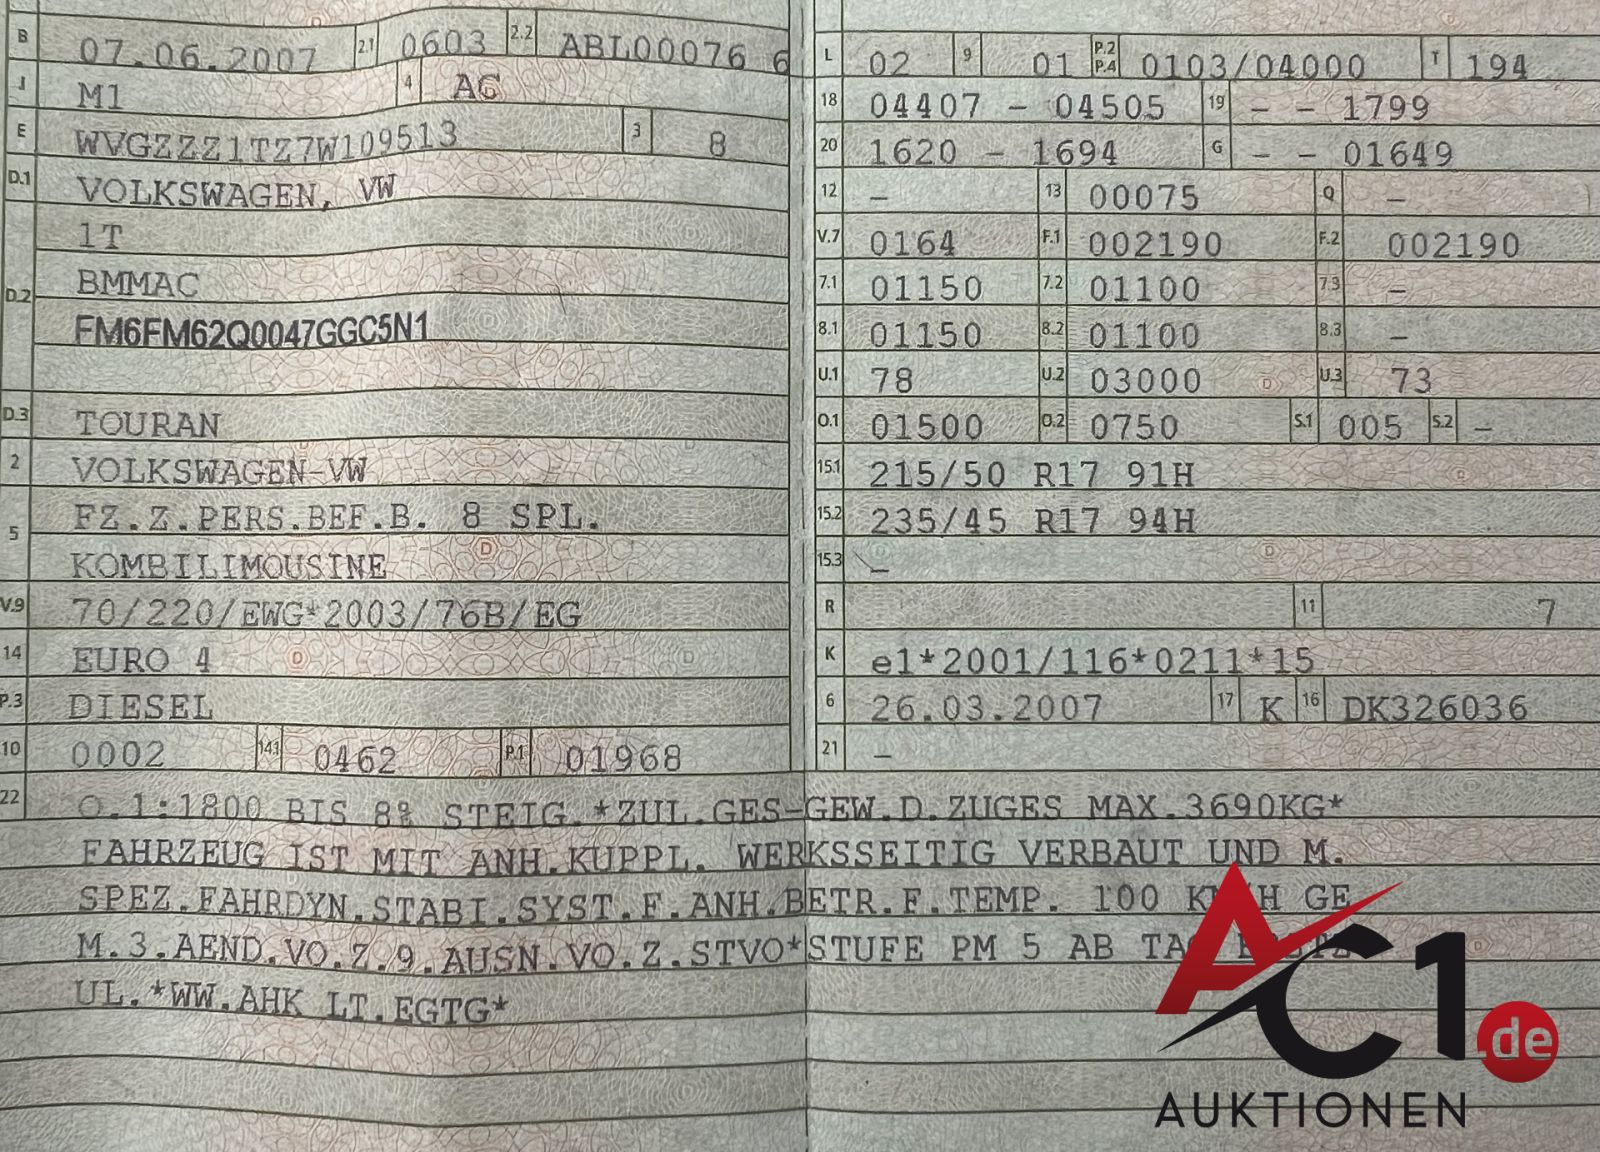 B 07.06.2007 2.1 0603 2.2 ABL00076 6
J M1 4 AG
E WVGZZZ1TZ7W109513 3 8
D.1 VOLKSWAGEN, VW
1T
D.2 BMMAC
FM6FM62Q0047GGC5N1
D.3 TOURAN
2 VOLKSWAGEN-VW
5 FZ.Z.PERS.BEF.B. 8 SPL.
KOMBILIMOUSINE
V.9 70/220/EWG*2003/76B/EG
14 EURO 4
P.3 DIESEL
10 0002 14.1 0462 P.1 01968
L 02 9 01 P.2 P.4 0103/04000 T 194
18 04407 - 04505 19 - - 1799
20 1620 - 1694 G - - 01649
12 - 13 00075 Q -
V.7 0164 F.1 002190 F.2 002190
7.1 01150 7.2 01100 7.3 -
8.1 01150 8.2 01100 8.3 -
U.1 78 U.2 03000 U.3 73
O.1 01500 O.2 0750 S.1 005 S.2 -
15.1 215/50 R17 91H
15.2 235/45 R17 94H
15.3 -
R 11 7
K e1*2001/116*0211*15
6 26.03.2007 17 K 16 DK326036
21 -
22 O.1:1800 BIS 8% STEIG.*ZUL.GES-GEW.D.ZUGES MAX.3690KG*
FAHRZEUG IST MIT ANH.KUPPL. WERKSSEITIG VERBAUT UND M.
SPEZ.FAHRDYN.STABI.SYST.F.ANH.BETR.F.TEMP. 100 GE
M.3.AEND.VO.Z.9.AUSN.VO.Z.STVO*STUFE PM 5 AB
UL.*WW.AHK LT.EGTG*
AC1.de
AUKTIONEN